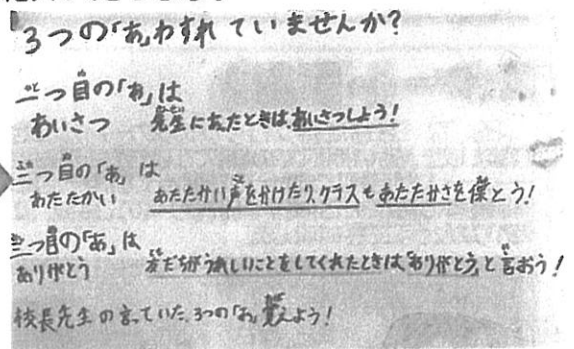 3つの「あ」わすれていませんか?
一つ目の「あ」は
あいさつ 先生にあったときは、あいさつしよう!
二つ目の「あ」は
あたたかい あたたかい声をかけたり、クラスもあたたかさを保とう!
三つ目の「あ」は
ありがとう 友だちがうれしいことをしてくれたときは「ありがとう」と言おう!
校長先生の言っていた、3つの「あ」覚えよう!